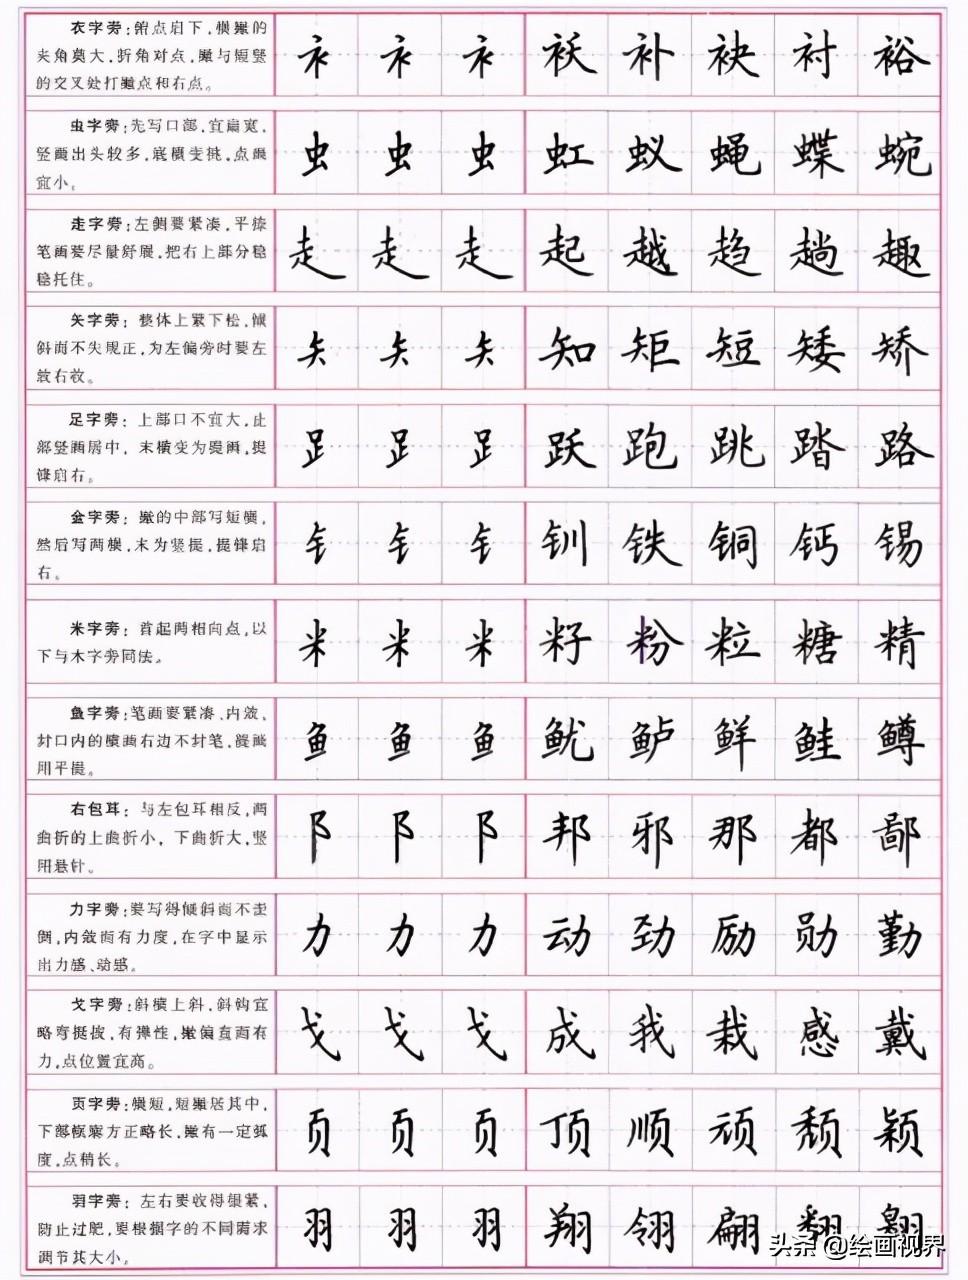 衣字旁:俯点启下,横撇的 衤 衤 衤 袄 补 袂 衬 裕
夹角莫大,折角对点,撇与短竖
的交叉处打撇点和右点。
虫字旁:先写口部,宜扁宽, 虫 虫 虫 虹 蚁 蝇 蝶 蜿
竖画出头较多,底横变挑,点画
宜小。
走字旁:左侧要紧凑,平捺 走 走 走 起 越 趋 趟 趣
笔画要尽量舒展,把右上部分稳
稳托住。
矢字旁:整体上紧下松,倾 矢 矢 矢 知 矩 短 矮 矫
斜而不失规正,为左偏旁时要左
放右收。
足字旁:上部口不宜大,止 𧾷 𧾷 𧾷 跃 跑 跳 踏 路
部竖画居中,末横变为提画,提
锋启右。
金字旁:撇的中部写短横, 钅 钅 钅 钏 铁 铜 钙 锡
然后写两横,末为竖提,提锋启
右。
米字旁:首起两相向点,以 米 米 米 籽 粉 粒 糖 精
下与木字旁同法。
鱼字旁:笔画要紧凑、内敛, 鱼 鱼 鱼 鱿 鲈 鲜 鲑 鳟
封口内的横画右边不封笔,提画
用平提。
右包耳:与左包耳相反,两 阝 阝 阝 邦 邪 那 都 鄙
曲折的上曲折小,下曲折大,竖
用悬针。
力字旁:要写得倾斜而不歪 力 力 力 动 劲 励 勋 勤
倒,内敛而有力度,在字中显示
出力感、动感。
戈字旁:斜横上斜,斜钩宜 戈 戈 戈 成 我 栽 感 戴
略弯挺拔,有弹性,撇偏直而有
力,点位置宜高。
页字旁:横短,短撇居其中, 页 页 页 顶 顺 顽 颓 颖
下部框架方正略长,撇有一定弧
度,点稍长。
羽字旁:左右要收得很紧, 羽 羽 羽 翔 翎 翩 翻 翱
防止过肥,要根据字的不同需求
调节其大小。
头条 @绘画视界